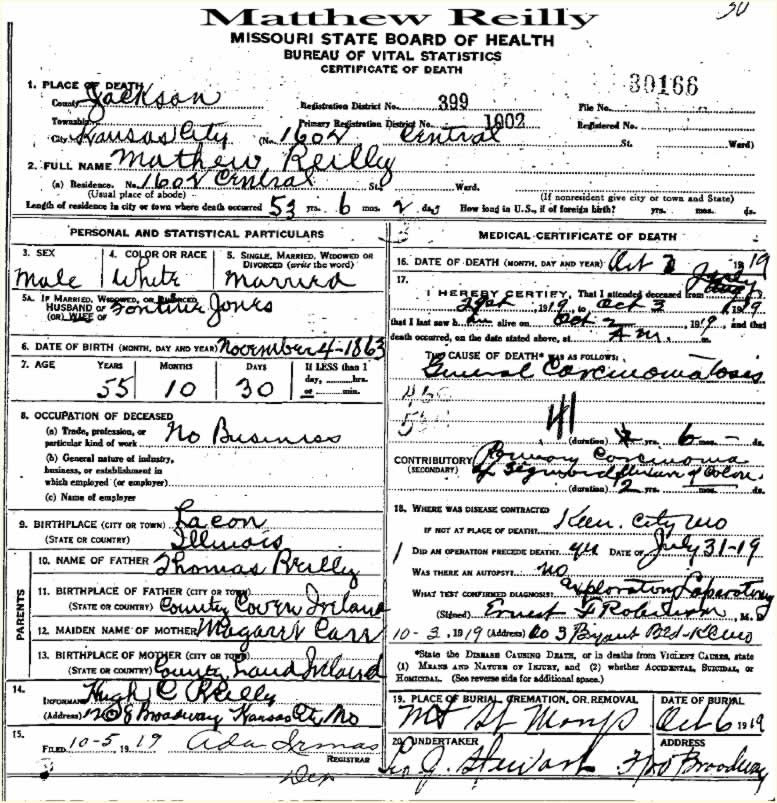 Matthew Reilly
30
MISSOURI STATE BOARD OF HEALTH
BUREAU OF VITAL STATISTICS
CERTIFICATE OF DEATH
1. PLACE OF DEATH
County Jackson Registration District No. 399 File No. 30166
Township Primary Registration District No. 1002 Registered No.
City Kansas City (No. 1602 Central St. Ward)
2. FULL NAME Mathew Reilly
(a) Residence. No. 1602 Central St. Ward.
(Usual place of abode) (If nonresident give city or town and State)
Length of residence in city or town where death occurred 53 yrs. 6 mos. 2 ds. How long in U.S., if of foreign birth? yrs. mos. ds.
PERSONAL AND STATISTICAL PARTICULARS
3. SEX 4. COLOR OR RACE 5. SINGLE, MARRIED, WIDOWED OR DIVORCED (write the word)
Male White Married
5A. IF MARRIED, WIDOWED, OR DIVORCED
HUSBAND OF Jones
(OR) WIFE OF
6. DATE OF BIRTH (MONTH, DAY AND YEAR) November 4-1863
7. AGE YEARS MONTHS DAYS If LESS than 1
day, hrs.
or min.
55 10 30
8. OCCUPATION OF DECEASED
(a) Trade, profession, or
particular kind of work No Business
(b) General nature of industry,
business, or establishment in
which employed (or employer)
(c) Name of employer
9. BIRTHPLACE (CITY OR TOWN) Lacon
(STATE OR COUNTRY) Illinois
PARENTS
10. NAME OF FATHER Thomas Reilly
11. BIRTHPLACE OF FATHER (CITY OR TOWN)
(STATE OR COUNTRY) County Ireland
12. MAIDEN NAME OF MOTHER Magaret Carr
13. BIRTHPLACE OF MOTHER (CITY OR TOWN)
(STATE OR COUNTRY) County Ireland
14.
INFORMANT Hugh C Reilly
(Address) 1208 Broadway Kansas City Mo
15.
FILED 10-5, 1919 Ada
REGISTRAR
Dep
MEDICAL CERTIFICATE OF DEATH
16. DATE OF DEATH (MONTH, DAY AND YEAR) Oct 3 1919
17.
I HEREBY CERTIFY, That I attended deceased from
1919, to Oct 3, 1919
that I last saw h alive on Oct 2, 1919, and that
death occurred, on the date stated above, at A m.
THE CAUSE OF DEATH* WAS AS FOLLOWS:
General Carcinomatosis
(duration) yrs. 6 mos. - ds.
CONTRIBUTORY Primary Carcinoma
(SECONDARY) of Sigmoid of Colon
(duration) 2 yrs. mos. ds.
18. WHERE WAS DISEASE CONTRACTED
IF NOT AT PLACE OF DEATH? City Mo
DID AN OPERATION PRECEDE DEATH? yes DATE OF July 31-19
WAS THERE AN AUTOPSY? no
WHAT TEST CONFIRMED DIAGNOSIS? Exploratory Laparotomy
(Signed) Ernest F Robinson, M. D.
10-3, 1919 (Address)
*State the DISEASE CAUSING DEATH, or in deaths from VIOLENT CAUSES, state
(1) MEANS AND NATURE OF INJURY, and (2) whether ACCIDENTAL, SUICIDAL, or
HOMICIDAL. (See reverse side for additional space.)
19. PLACE OF BURIAL, CREMATION, OR REMOVAL DATE OF BURIAL
Mt St Marys Oct 6 1919
20. UNDERTAKER ADDRESS
J. Stewart Broadway